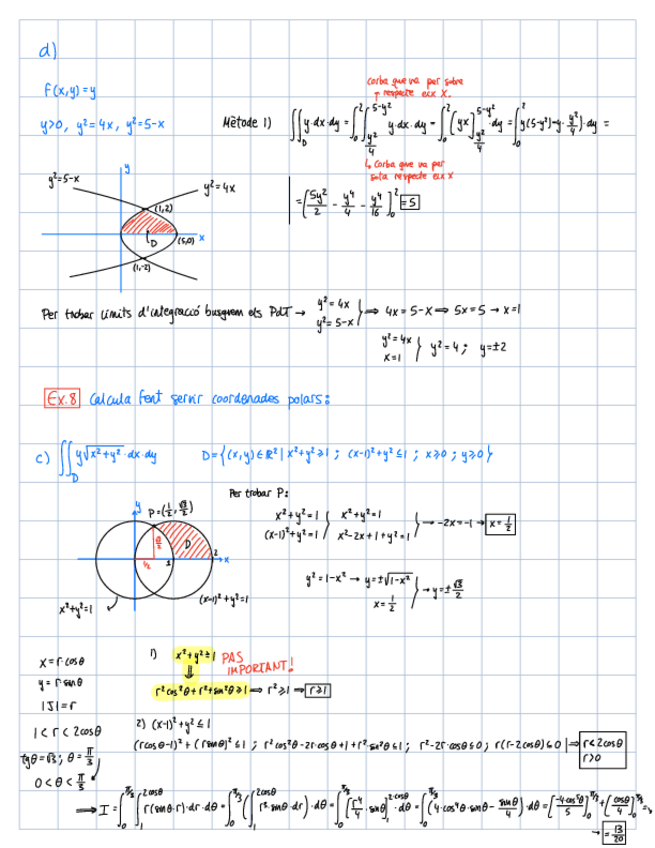 d)
f(x,y)=y
y>0, y²=4x, y²=5-x
Corba que va per sobre
↑ respecte eix X.
Mètode 1) ∬_D y·dx·dy = ∫_0^2 ∫_{y²/4}^{5-y²} y·dx·dy = ∫_0^2 (yx]_{y²/4}^{5-y²} dy = ∫_0^2 y(5-y²)-y·y²/4)·dy =
↳ Corba que va per
sota respecte eix X
= [5y²/2 - y⁴/4 - y⁴/16]_0^2 = 5
y
y²=5-x
y²=4x
(1,2)
D
(5,0)
x
(1,-2)
Per trobar límits d'integracció busquem els PdT → y²=4x
y²=5-x } ⟹ 4x=5-x ⟹ 5x=5 → x=1
y²=4x
x=1 } y²=4; y=±2
Ex.8 Calcula fent servir coordenades polars:
c) ∬_D y√(x²+y²)·dx·dy D={(x,y)∈ℝ² | x²+y²≥1; (x-1)²+y²≤1; x≥0; y≥0}
Per trobar P:
x²+y²=1
(x-1)²+y²=1 } x²+y²=1
x²-2x+1+y²=1 } → -2x=-1 → x=1/2
y²=1-x² → y=±√(1-x²)
x=1/2 } → y=±√3/2
y
P=(1/2, √3/2)
D
√3/2
1/2
1
2
x
x²+y²=1
(x-1)²+y²=1
x=r·cosθ
y=r·sinθ
|J|=r
1<r<2cosθ
tgθ=√3; θ=π/3
0<θ<π/3
1) x²+y²≥1 PAS
IMPORTANT!
⇓
r²cos²θ+r²+sin²θ≥1 ⟹ r²≥1 ⟹ r≥1
2) (x-1)²+y²≤1
(rcosθ-1)²+(rsinθ)²≤1; r²cos²θ-2rcosθ+1+r²·sin²θ≤1; r²-2r·cosθ≤0; r(r-2cosθ)≤0 ⟹ r<2cosθ
r>0
⟹ I=∫_0^{π/3} ∫_1^{2cosθ} r(sinθ·r)·dr·dθ = ∫_0^{π/3} (∫_1^{2cosθ} r³ sinθ·dr)·dθ = ∫_0^{π/3} [r⁴/4·sinθ]_1^{2·cosθ}·dθ = ∫_0^{π/3} (4·cos⁴θ·sinθ - sinθ/4)dθ = [-4cos⁵θ/5]_0^{π/3} + [cosθ/4]_0^{π/3} =
→ = 13/20